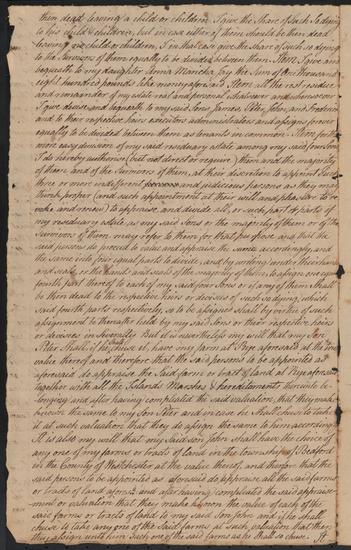 them dead leaving a child or children, I give the Share of such so dying
to his child or children, but in case either of them should be then dead
leaving no child or children, I in that case give the Share of such so dying
to the Survivors of them equally to be divided between them. Item, I give and
bequeath to my daughter Anna Maricka Jay the Sum of one thousand
eight hundred pounds like money aforesaid. Item, all the rest residue
and remainder of my estate real and personal whatsoever and wheresoever
I give devise and bequeath to my said Sons James, Peter, John, and Frederick
and to their respective heirs executors administrators and assigns forever
equally to be divided between them as tenants in common. Item, for the
more easy division of my said residuary estate among my said four Sons
I do hereby authorise (but not direct or require) them and the majority
of them, and of the Survivors of them, at their discretion to appoint
three or more indifferent and judicious persons as they may
think proper (and such appointment at their will and pleasure to
and renew) to appraise and divide all or such part or parts of
my residuary estate, as my said Sons or the majority of them or of the
Survivors of them, may refer to them for that purpose, and that the
said persons do proceed to value and appraise the same accordingly, and
the same into four equal parts to divide, and by writing under their hands
and seals or the hands and seals of the majority of them, to assign one
fourth part thereof to each of my said four Sons or if any of them shall
be then dead to the respective heirs or devisees of such so dying, which
said fourth parts respectively, so to be assigned shall by virtue of such
assignment be thereafter held by my said Sons or their respective heirs
or devisees in Severalty. But it is nevertheless my will that my Son
Peter shall if he please to it, have my farm at Rye aforesaid at the
value thereof and therefore that the said persons to be appointed as
aforesaid do appraise the said farm or tract of land at Rye aforesaid
together with all the Islands Marshes & hereditaments thereunto be-
longing and after having compleated the said valuation, that they make
known the same to my Son Peter and in case he shall chuse to take
it at such valuation that they do assign the same to him accordingly
It is also my will that my said son John shall have the choice of
any one of my farms or tracts of land in the township of Bedford
in the County of Westchester at the value thereof, and therefore that the
said persons to be appointed as aforesaid do appraise all the said farms
or tracts of land aforesd. and after having compleated the said appraise-
ment or valuation that they make known the value of each of the
said farms or tracts of land to my said Son John and if he shall
chuse to take any one of the said farms at such valuation that then
they assign unto him such one of the said farms as he shall so chuse.